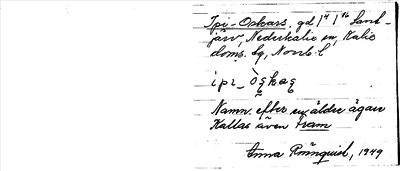 Ipi-Oskars, gd 1⁴ 1⁴⁶ Sand-
järv, Nederkalix sn, Kalix
doms. hg, Norrb. l.
ipi_ òskas
Namn efter en äldre ägare
Kallas även Fram
Anna Rönnquist, 1949